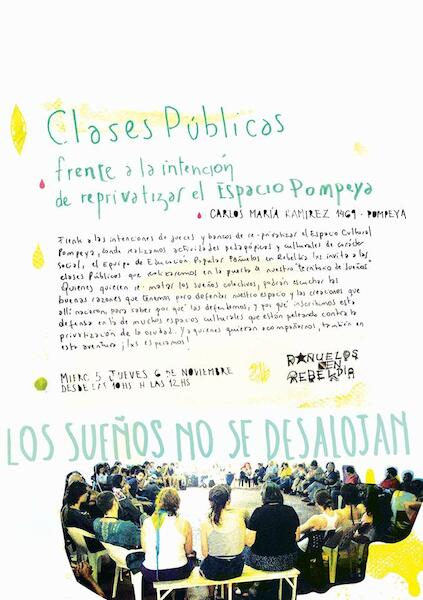 Clases Públicas
frente a la intención
de reprivatizar el Espacio Pompeya
CARLOS MARÍA RAMIREZ 1469 - POMPEYA
Frente a las intenciones de jueces y bancos de re-privatizar el Espacio Cultural
Pompeya, donde realizamos actividades pedagógicas y culturales de carácter
social, el Equipo de Educación Popular Pañuelos en Rebeldía lxs invita a las
clases Públicas que realizaremos en la puerta de nuestro "territorio de sueños"
Quienes quieren re-matar los sueños colectivos, podrán escuchar las
buenas razones que tenemos para defender nuestro espacio y las creaciones que
allí nacieron, para saber por qué las defendemos, y por qué inscribimos esta
defensa en la de muchos espacios culturales que están peleando contra la
privatización de la ciudad. Y a quienes quieran acompañarnos, también en
esta aventura ¡lxs esperamos!
MIERC 5, JUEVES 6 DE NOVIEMBRE
DESDE LAS 10HS A LAS 12HS
PAÑUELOS
EN
REBELDIA
LOS SUEÑOS NO SE DESALOJAN